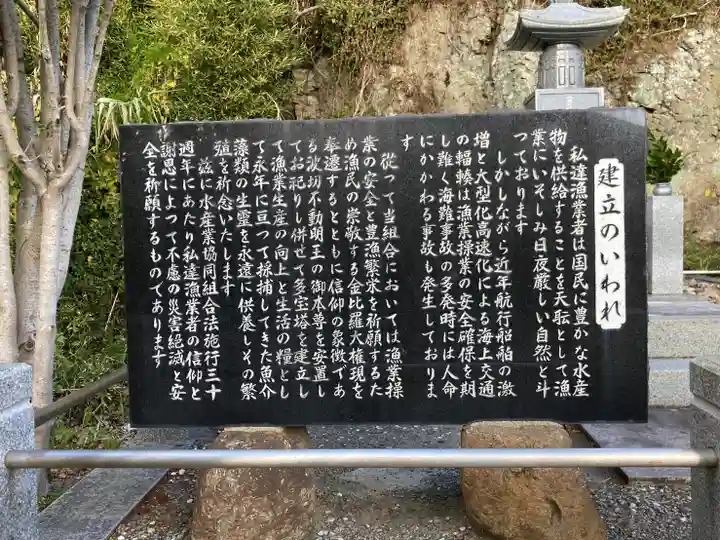 建立のいわれ
私達漁業者は国民に豊かな水産
物を供給することを天耘として漁
業にいそしみ日夜厳しい自然と斗
つております
しかしながら近年航行船舶の激
増と大型化高速化による海上交通
の輻輳は漁業操業の安全確保を期
し難く海難事故の多発時には人命
にかかわる事故も発生しておりま
す
従つて当組合においては漁業操
業の安全と豊漁繁栄を祈願するた
め漁民の崇敬する金比羅大権現を
奉遷するとともに信仰の象徴であ
る波切不動明王の御本尊を安置し
てお祀りし併せて多宝塔を建立し
て漁業生産の向上と生活の糧とし
て永年に亘つて採捕してきた魚介
藻類の生霊を永遠に供養しその繁
殖を祈念いたします
茲に水産業協同組合法施行三十
週年にあたり私達漁業者の信仰と
謝恩によつて不慮の災害絶滅と安
全を祈願するものであります